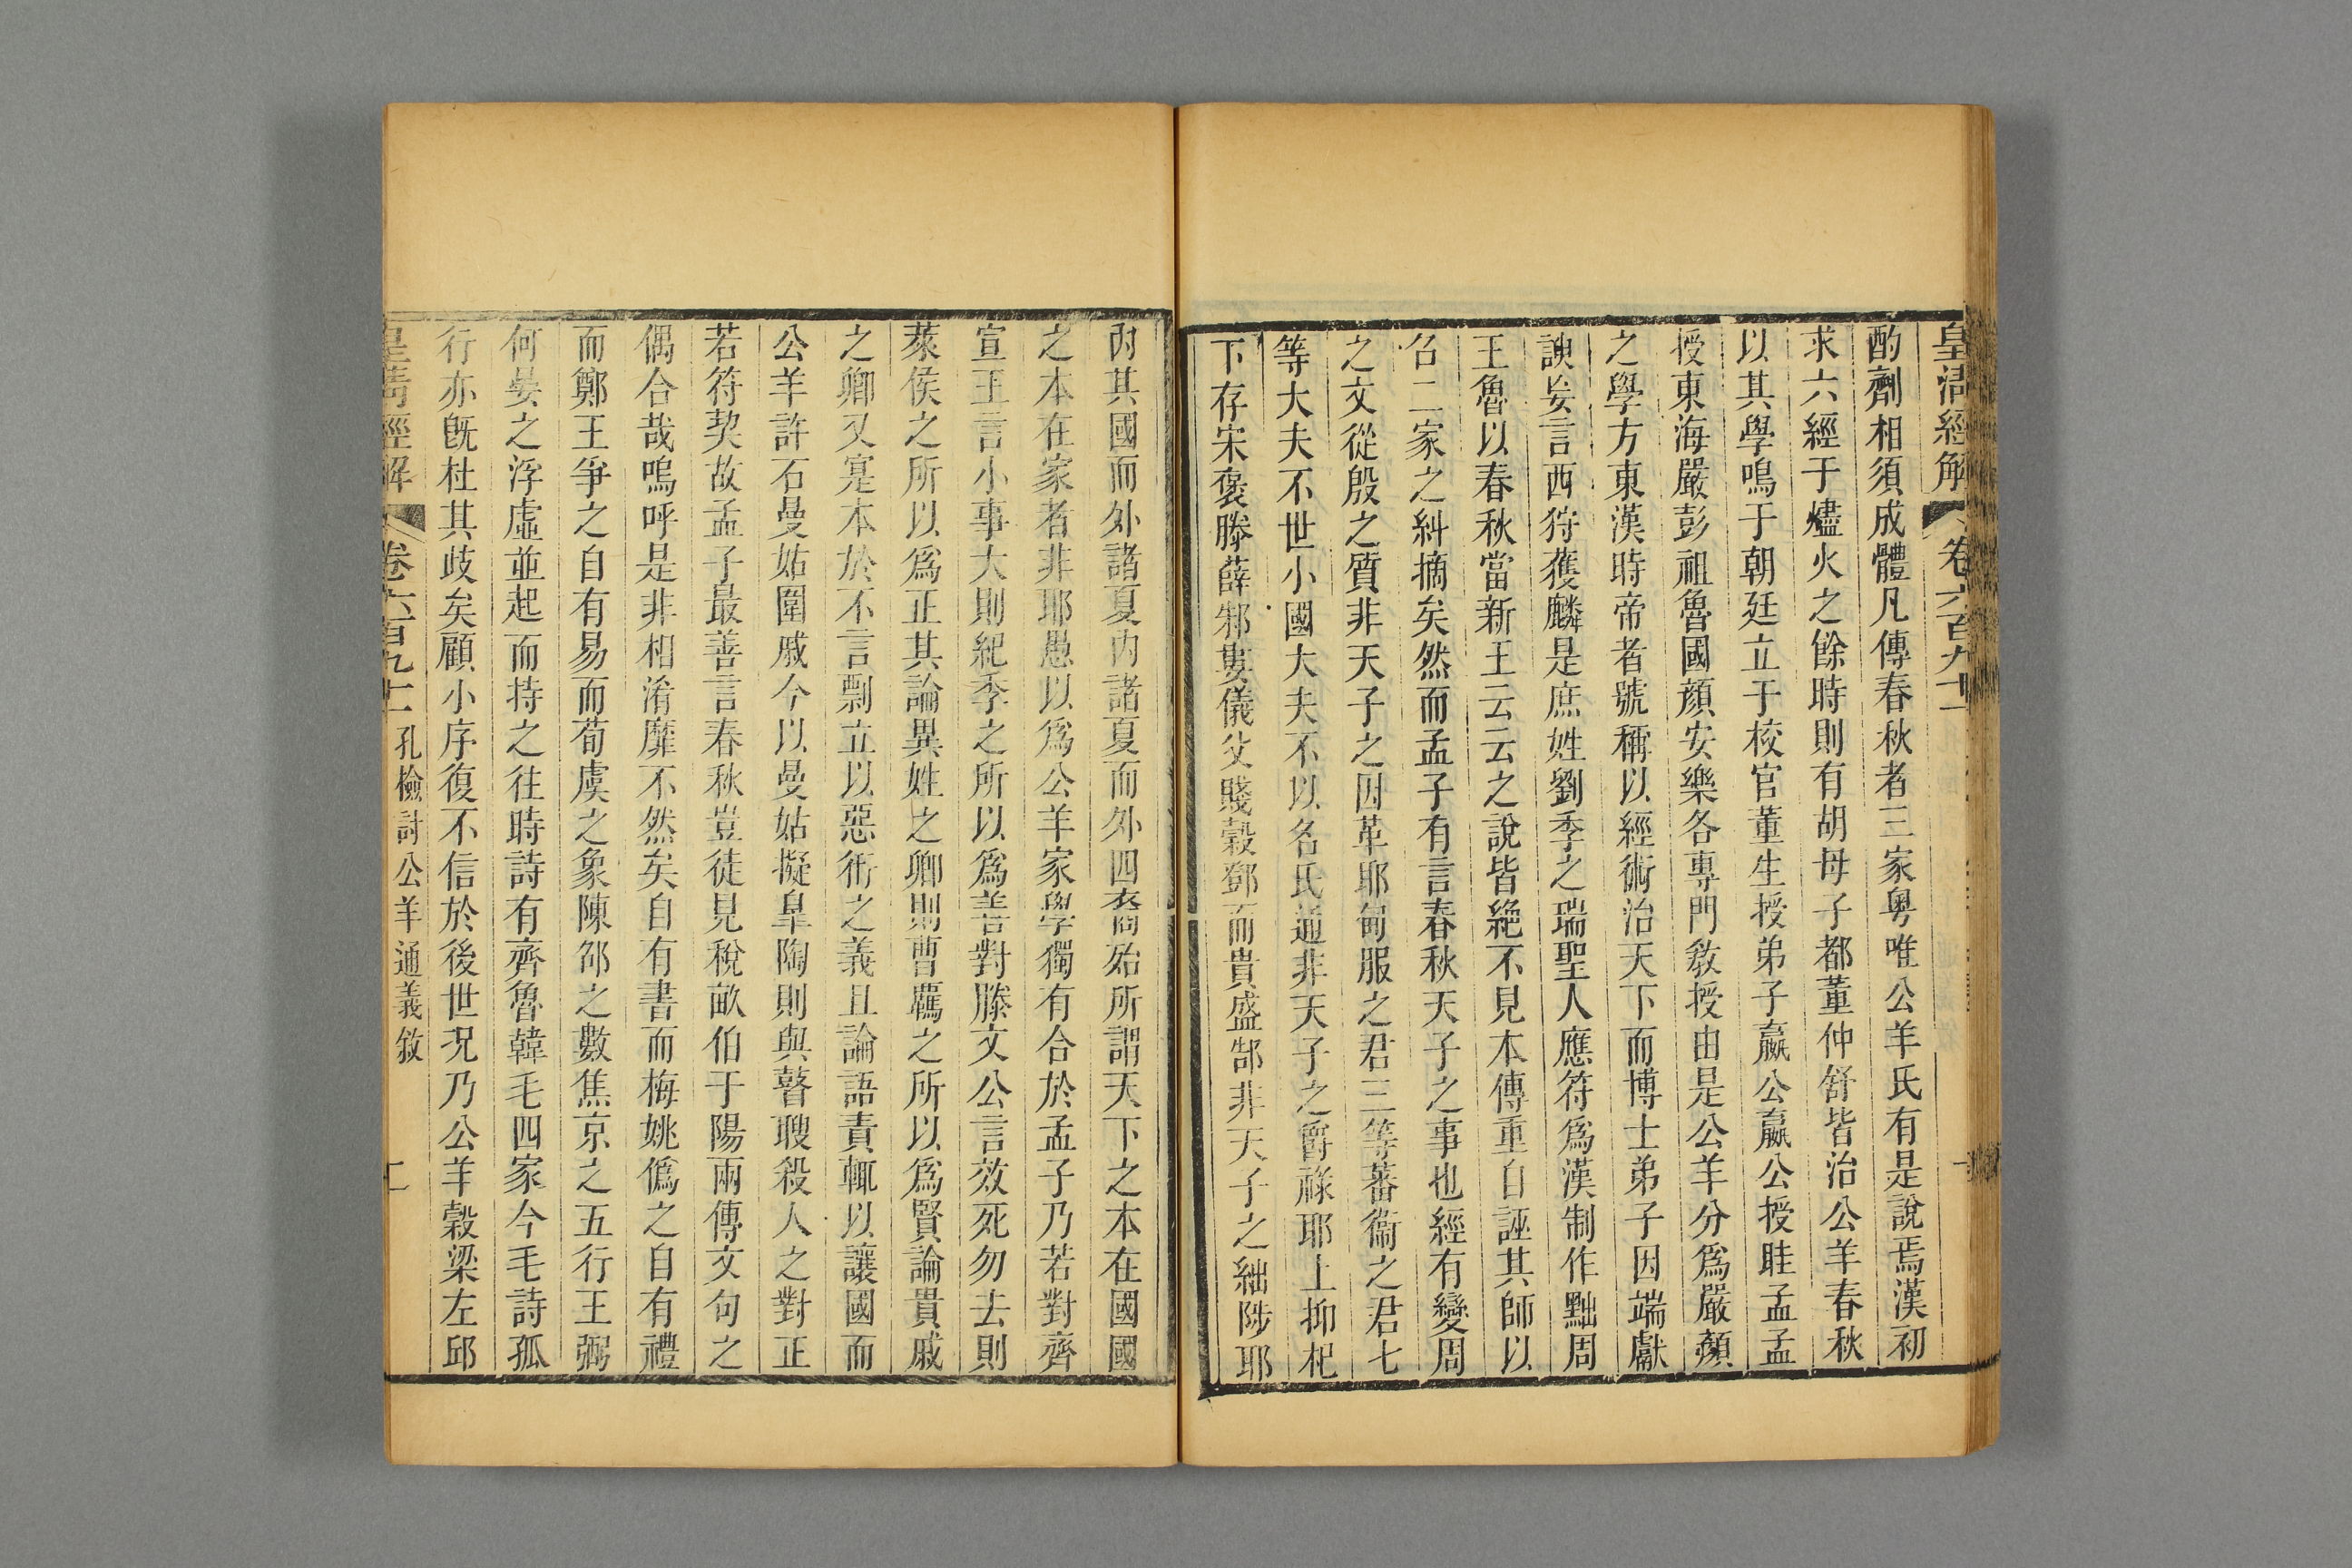 皇清經解
卷六百九十一
酌劑相須成體凡傳春秋者三家粵唯公羊氏有是說焉漢初
求六經于燼火之餘時則有胡母子都董仲舒皆治公羊春秋
以其學鳴于朝廷立于校官董生授弟子嬴公嬴公授眭孟孟
授東海嚴彭祖魯國顏安樂各專門敎授由是公羊分爲嚴顏
之學方東漢時帝者號稱以經術治天下而博士弟子因端獻
諛妄言西狩獲麟是庶姓劉季之瑞聖人應符爲漢制作黜周
王魯以春秋當新王云云之說皆絶不見本傳重自誣其師以
召二家之糾摘矣然而孟子有言春秋天子之事也經有變周
之文從殷之質非天子之因革耶甸服之君三等蕃衞之君七
等大夫不世小國大夫不以名氏通非天子之爵祿耶上抑杞
下存宋褒滕薛邾婁儀父賤穀鄧而貴盛郜非天子之絀陟耶
內其國而外諸夏內諸夏而外四裔殆所謂天下之本在國國
之本在家者非耶愚以爲公羊家學獨有合於孟子乃若對齊
宣王言小事大則紀季之所以爲善對滕文公言效死勿去則
萊侯之所以爲正其論異姓之卿則曹覊之所以爲賢論貴戚
之卿又寔本於不言剽立以惡衎之義且論語責輒以讓國而
公羊許石曼姑圍戚今以曼姑擬臯陶則與瞽瞍殺人之對正
若符契故孟子最善言春秋豈徒見稅畝伯于陽兩傳文句之
偶合哉嗚呼是非相淆靡不然矣自有書而梅姚僞之自有禮
而鄭王爭之自有易而荀虞之象陳邵之數焦京之五行王弼
何晏之浮虛並起而持之往時詩有齊魯韓毛四家今毛詩孤
行亦旣杜其歧矣顧小序復不信於後世況乃公羊穀梁左邱
皇淸經解
卷六百九十一
孔檢討公羊通義敘